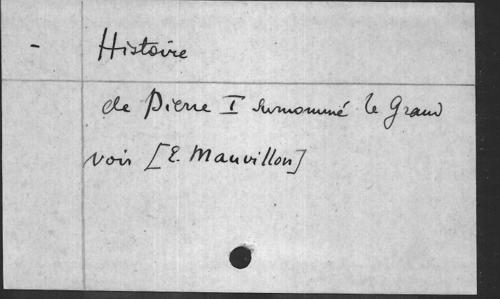 - Histoire
de Pierre I surnommé le Grand
voir [E. Mauvillon]